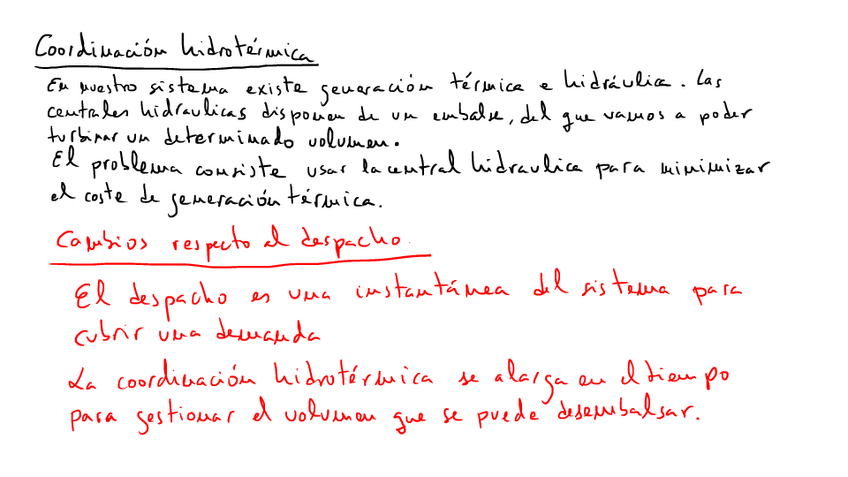 Coordinación hidrotérmica
En nuestro sistema existe generación térmica e hidráulica. Las
centrales hidraulicas disponen de un embalse, del que vamos a poder
turbinar un determinado volumen.
El problema consiste usar la central hidraulica para minimizar
el coste de generación térmica.
Cambios respecto al despacho.
El despacho es una instantánea del sistema para
cubrir una demanda
La coordinación hidrotérmica se alarga en el tiempo
para gestionar el volumen que se puede desembalsar.